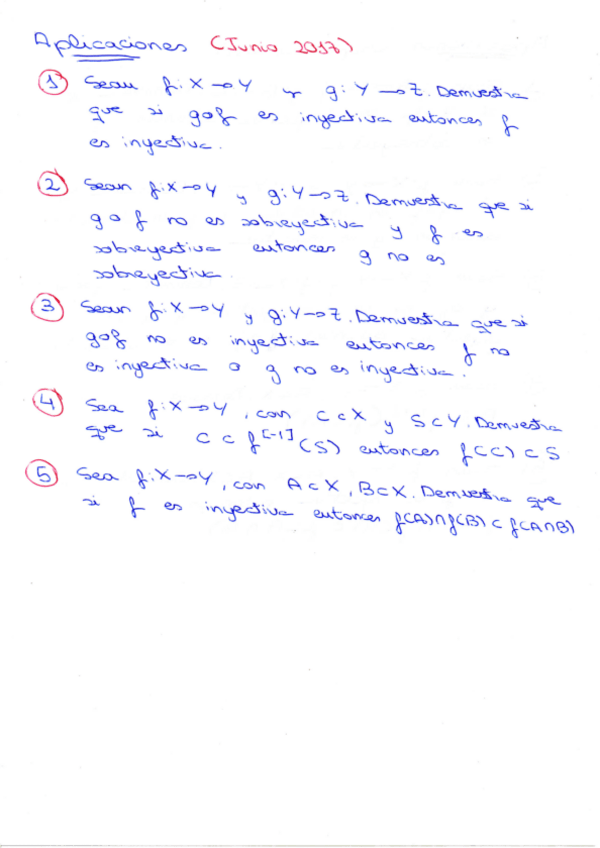 Aplicaciones (Junio 2017)
① Sean f: X→Y y g: Y→Z. Demuestra
que si g∘f es inyectiva entonces f
es inyectiva.
② Sean f: X→Y y g: Y→Z. Demuestra que si
g∘f no es sobreyectiva y f es
sobreyectiva entonces g no es
sobreyectiva.
③ Sean f: X→Y y g: Y→Z. Demuestra que si
g∘f no es inyectiva entonces f no
es inyectiva o g no es inyectiva.
④ Sea f: X→Y, con C⊂X y S⊂Y. Demuestra
que si C⊂f[-1](S) entonces f(C)⊂S
⑤ Sea f: X→Y, con A⊂X, B⊂X. Demuestra que
si f es inyectiva entonces f(A)∩f(B)⊂f(A∩B)